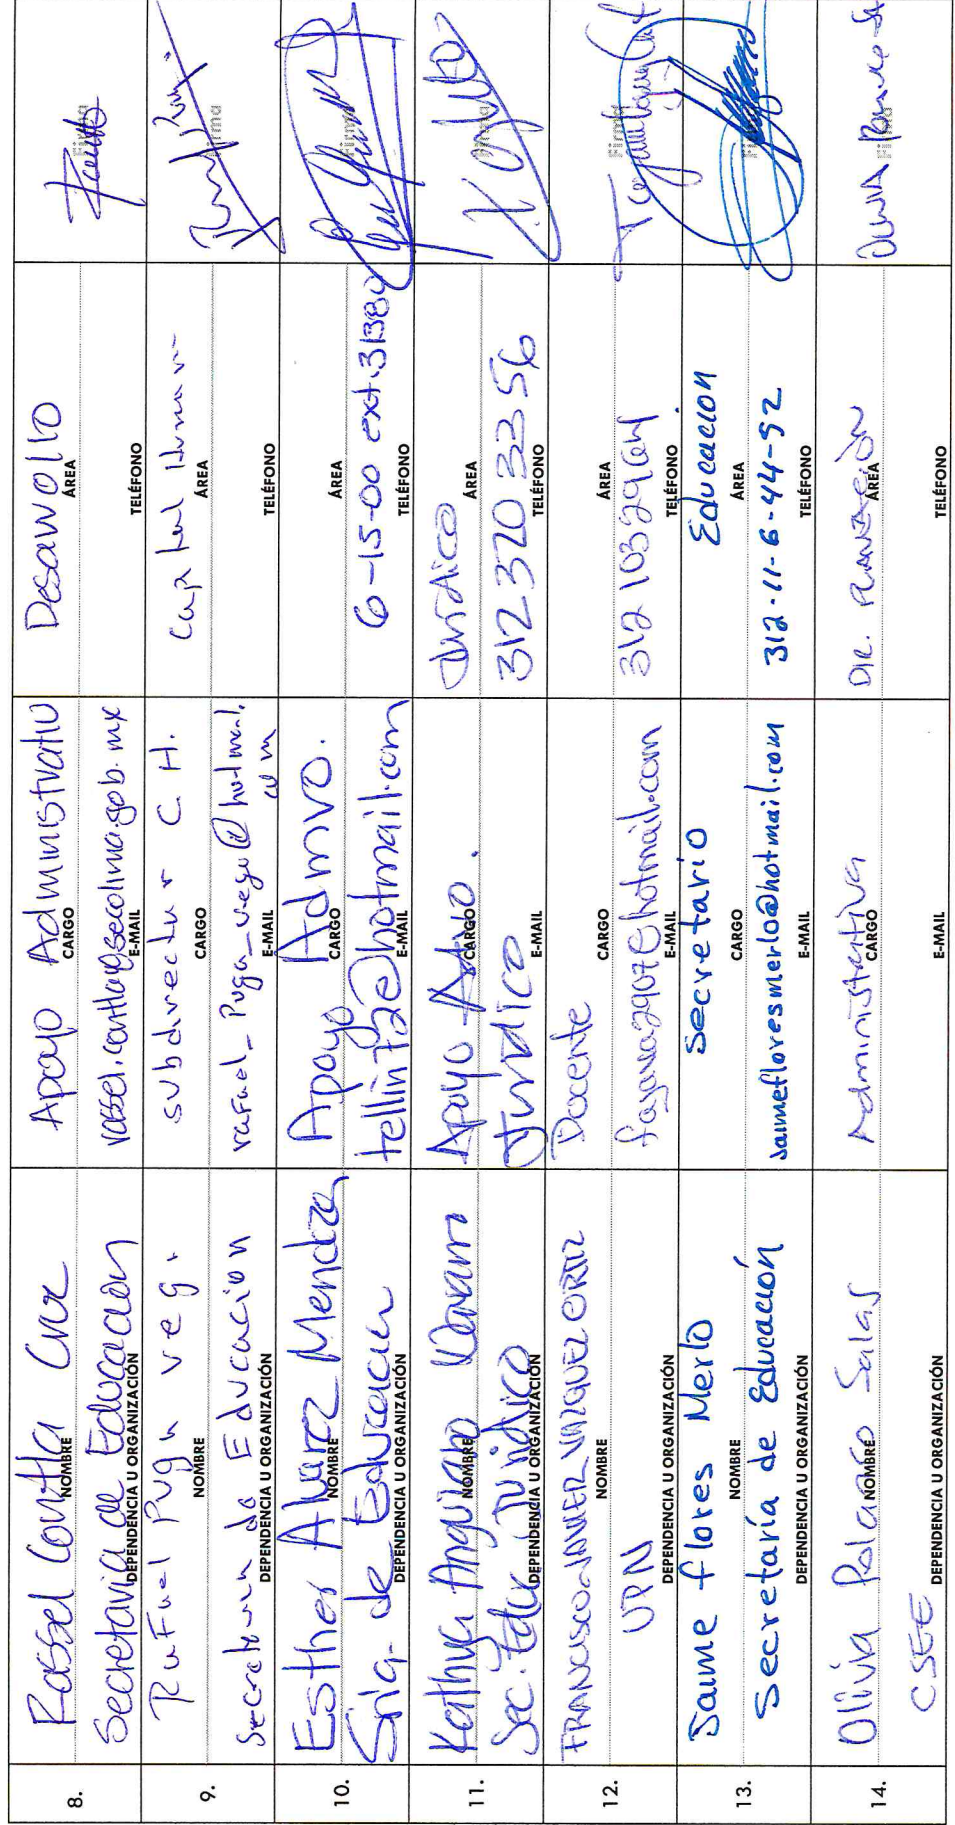 8.
Rossel Contla Cruz
NOMBRE
Secretaria de Educación
DEPENDENCIA U ORGANIZACIÓN
Apoyo Administrativo
CARGO
E-MAIL
Desarrollo
ÁREA
TELÉFONO
Firma
9.
Rafael Puga Veg.
NOMBRE
Secretaria de Educacion
DEPENDENCIA U ORGANIZACIÓN
Subdirector C. H.
CARGO
rafael_Puga_vega@hotmail.
com
E-MAIL
Capital Humano
ÁREA
TELÉFONO
Firma
10.
Esther Alvarez Mendoza
NOMBRE
Sria. de Educación
DEPENDENCIA U ORGANIZACIÓN
Apoyo Admvo.
CARGO
tellin72@hotmail.com
E-MAIL
ÁREA
6-15-00 ext.31380
TELÉFONO
Firma
11.
Kathya Anguiano
NOMBRE
Sec. Educ. Juridico
DEPENDENCIA U ORGANIZACIÓN
Apoyo
CARGO
Juridico
E-MAIL
Juridico
ÁREA
312 320 33 56
TELÉFONO
Firma
12.
FRANCISCO JAVIER VAZQUEZ ORTIZ
NOMBRE
UPN
DEPENDENCIA U ORGANIZACIÓN
Docente
CARGO
E-MAIL
ÁREA
TELÉFONO
Firma
13.
Jaime flores Merlo
NOMBRE
Secretaría de Educación
DEPENDENCIA U ORGANIZACIÓN
Secretario
CARGO
jaimefloresmerlo@hotmail.com
E-MAIL
Educacion
ÁREA
312-11-6-44-52
TELÉFONO
Firma
14.
Olivia Polanco Salas
NOMBRE
CSEE
DEPENDENCIA U ORGANIZACIÓN
Administrativa
CARGO
E-MAIL
DIR. PLANEACIÓN
ÁREA
TELÉFONO
Firma